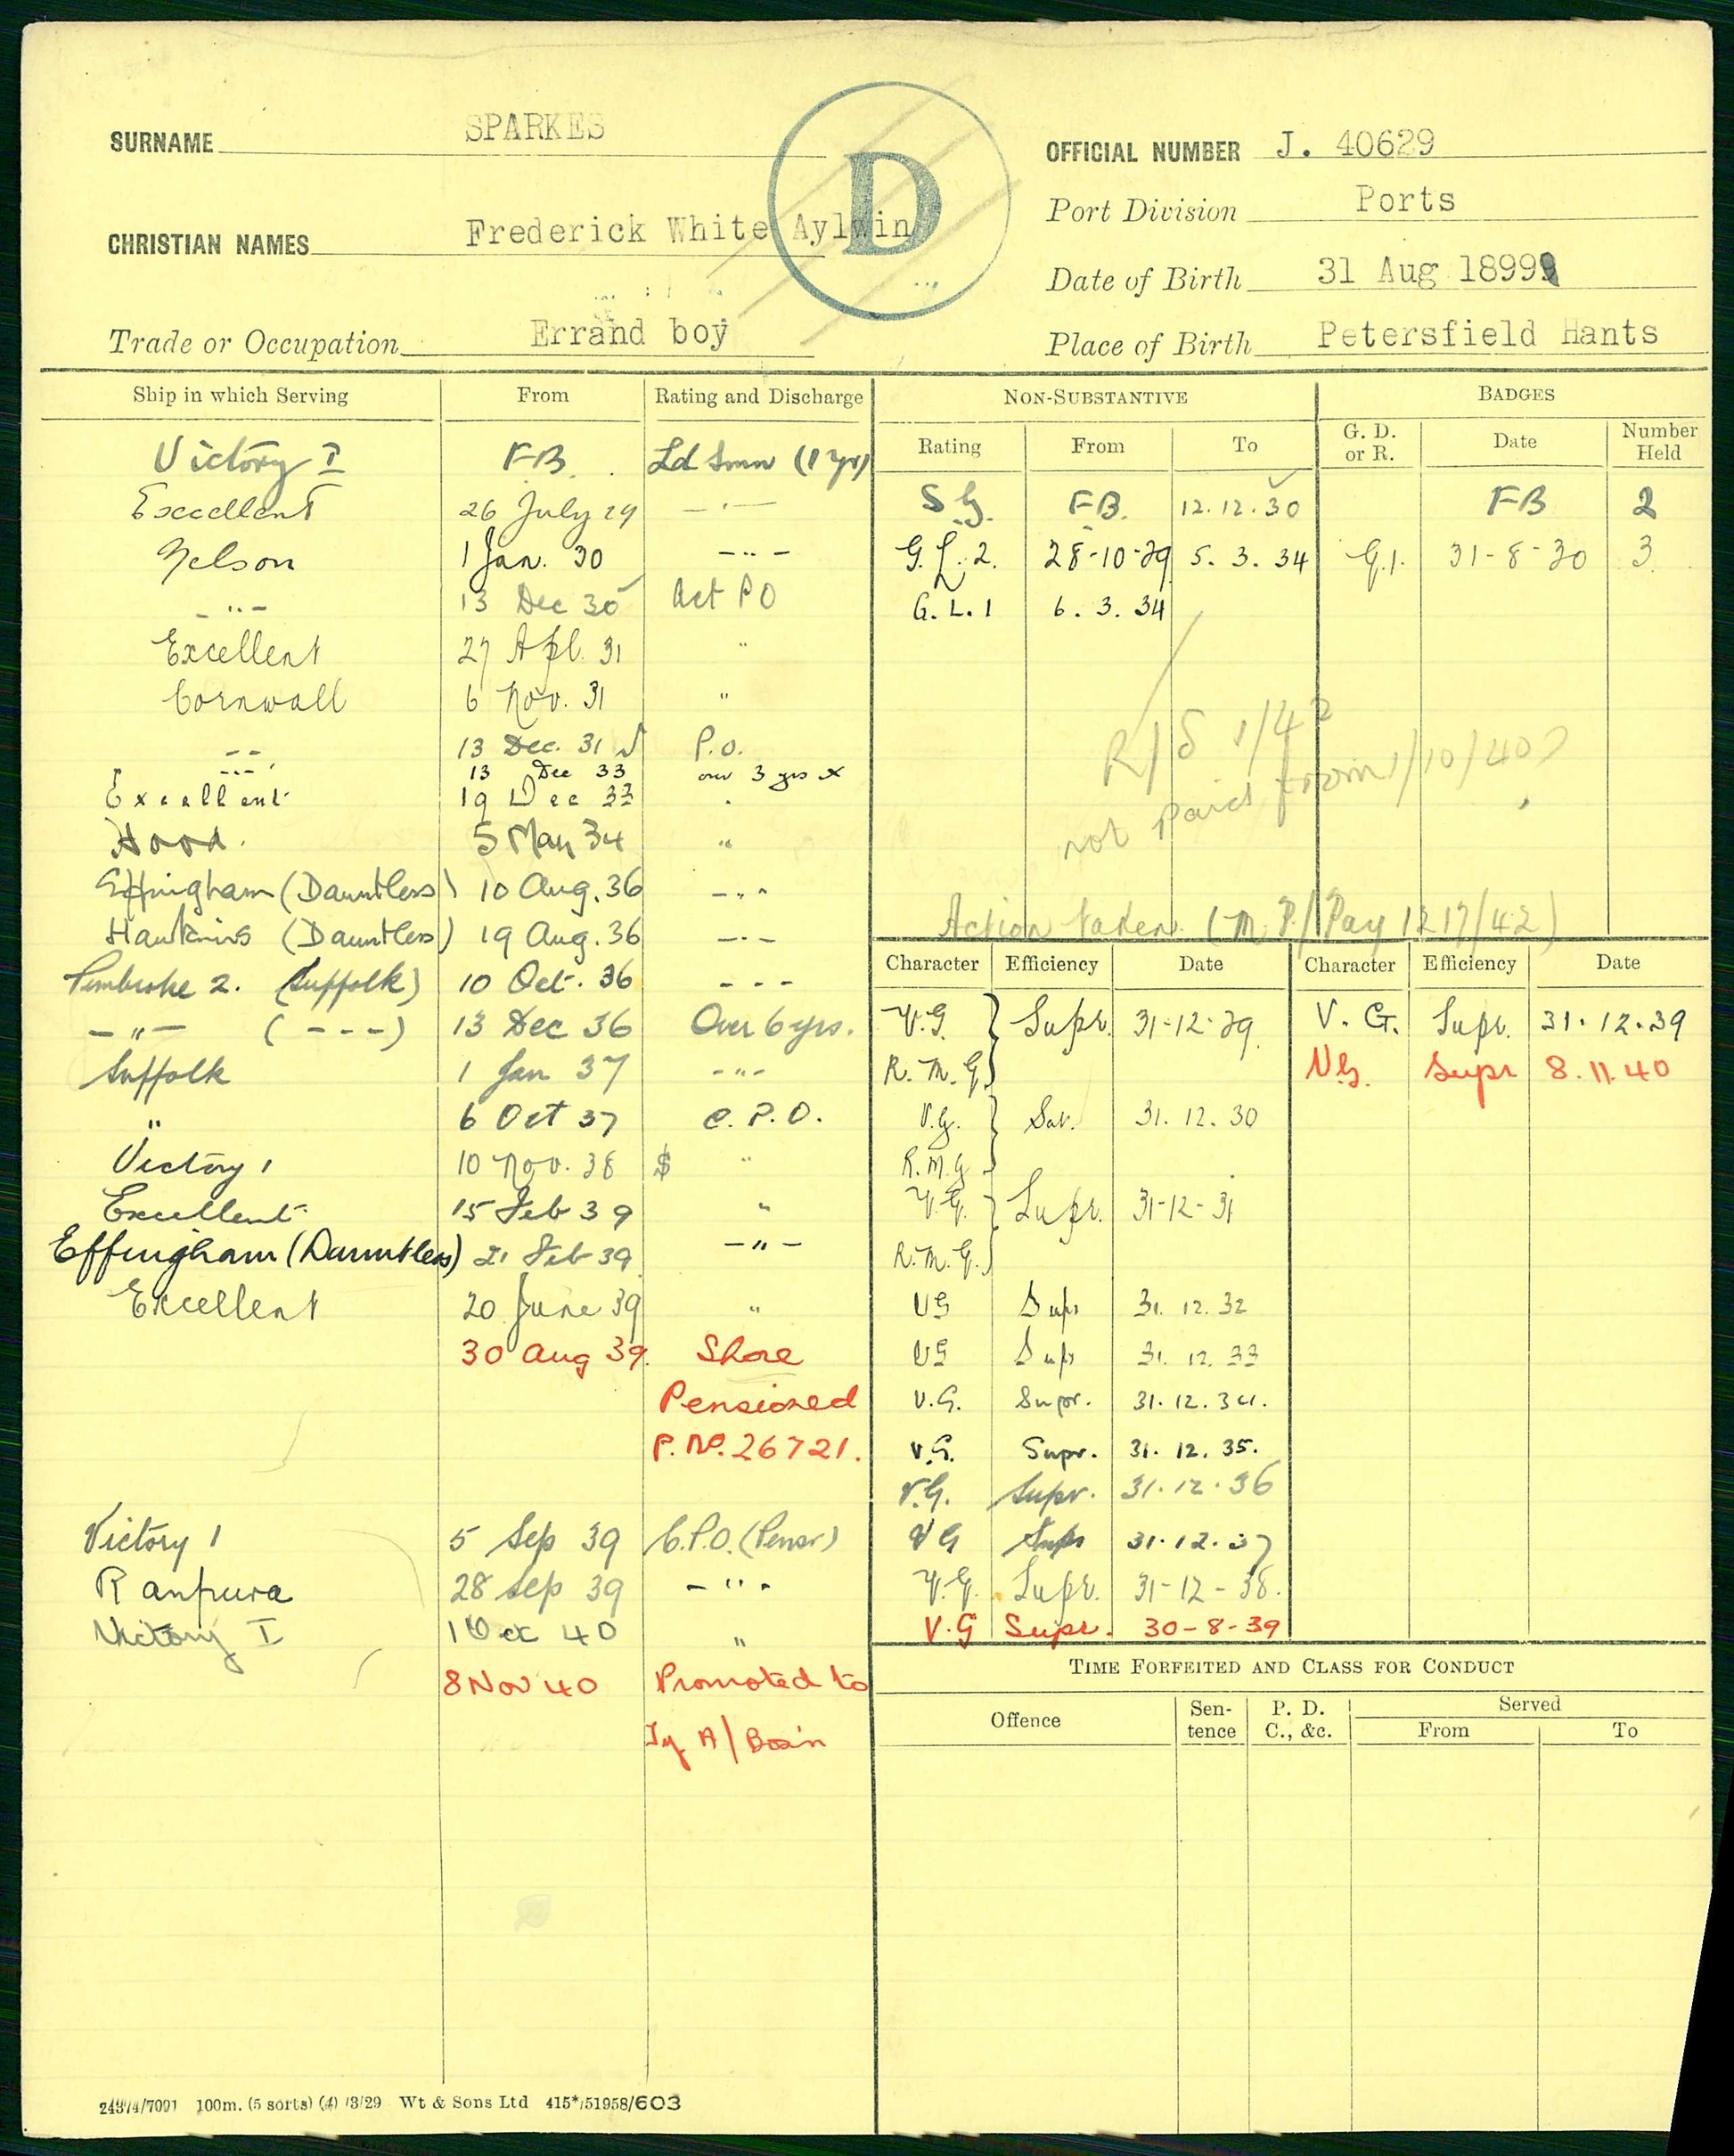 SURNAME SPARKES
D
OFFICIAL NUMBER J. 40629
Port Division Ports
CHRISTIAN NAMES Frederick White Aylwin
Date of Birth 31 Aug 1899
Trade or Occupation Errand boy
Place of Birth Petersfield Hants
Ship in which Serving From Rating and Discharge
Victory I FB. Ld Smn (1 yr)
Excellent 26 July 29 — " —
Nelson 1 Jan. 30 - " -
- " - 13 Dec 30 Act PO
Excellent 27 Apl. 31 "
Cornwall 6 Nov. 31 "
- - 13 Dec. 31 P.O.
- " - 13 Dec 33 over 3 yrs x
Excellent 19 Dec 33 "
Hood. 5 May 34 "
Effingham (Dauntless) 10 Aug. 36 - " -
Hawkins (Dauntless) 19 Aug. 36 - " -
Pembroke 2. (Suffolk) 10 Oct. 36 - - -
- " - ( - - - ) 13 Dec 36 Over 6 yrs.
Suffolk 1 Jan 37 - " -
" 6 Oct 37 C.P.O.
Victory 1 10 Nov. 38 $ "
Excellent 15 Feb 39 "
Effingham (Dauntless) 21 Feb 39 - " -
Excellent 20 June 39 "
30 Aug 39. Shore
Pensioned
P. No. 26721.
Victory 1 5 Sep 39 C.P.O. (Pensr)
Ranpura 28 Sep 39 - " -
Victory I 1 Oct 40 "
8 Nov 40 Promoted to
Ty A/Bosn
NON-SUBSTANTIVE
Rating From To
S.G. FB. 12.12.30
G.L.2. 28-10-29 5.3.34
G.L.1 6.3.34
BADGES
G. D. or R. Date Number Held
FB 2
G.1. 31-8-30 3
R/S 1/42
not paid from 1/10/40?
Action taken (M.P./Pay 1217/42)
Character Efficiency Date
V.G. } Supr. 31-12-29
R.M.G.
V.G. } Sat. 31.12.30
R.M.G
V.G. } Supr. 31-12-31
R.M.G.
VG Supr 31.12.32
VG Supr 31.12.33
V.G. Supr. 31.12.34.
V.G. Supr. 31.12.35.
V.G. Supr. 31.12.36
VG Supr 31.12.37
V.G. Supr. 31-12-38.
V.G Supr. 30-8-39
Character Efficiency Date
V.G. Supr. 31.12.39
VG. Supr 8.11.40
TIME FORFEITED AND CLASS FOR CONDUCT
Offence Sen-tence P. D. C., &c. Served
From To
24374/7091 100m. (5 sorts) (4) /3/29 Wt & Sons Ltd 415*/51958/603